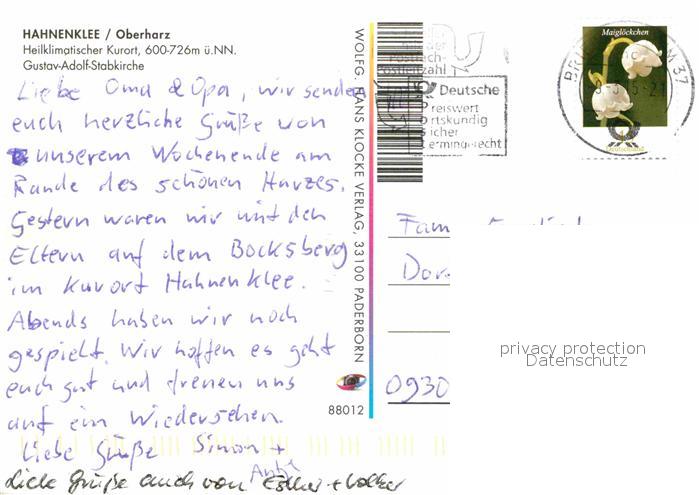 HAHNENKLEE / Oberharz
Heilklimatischer Kurort, 600-726m ü.NN.
Gustav-Adolf-Stabkirche
Liebe Oma & Opa, wir senden
euch herzliche Grüße von
unserem Wochenende am
Rande des schönen Harzes.
Gestern waren wir mit den
Eltern auf dem Bocksberg
im Kurort Hahnenklee.
Abends haben wir noch
gespielt. Wir hoffen es geht
euch gut und freuen uns
auf ein Wiedersehen.
Liebe Grüße Simon +
Antje
Liebe Grüße auch von Esther + Volker
WOLFG. HANS KLOCKE VERLAG, 33100 PADERBORN
88012
Postfach-
Postleitzahl
Deutsche
Preiswert
Ortskundig
Sicher
Termingerecht
Maiglöckchen
Deutschland
37
Fam
0930
privacy protection
Datenschutz